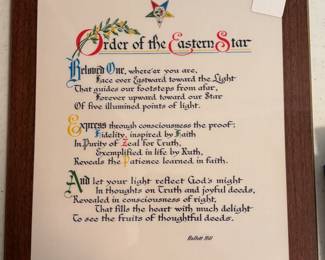 Order of the Eastern Star
Beloved One, where'er you are,
Face ever Eastward toward the Light
That guides our footsteps from afar,
Forever upward toward our Star
Of five illumined points of light.
Express through consciousness the proof:
Fidelity, inspired by Faith
In Purity of Zeal for Truth,
Exemplified in life by Ruth,
Reveals the Patience learned in faith.
And let your light reflect God's might
In thoughts on Truth and joyful deeds,
Revealed in consciousness of right,
That fills the heart with much delight
To see the fruits of thoughtful deeds.
Hill